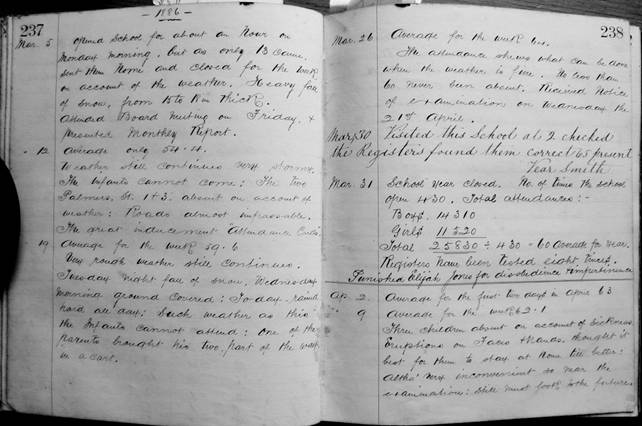 237
1886
Mar. 5 opened School for about an Hour on
Monday morning, but as only 13 came,
sent them Home and closed for the week
on account of the weather. Heavy fall
of snow, from 15 to 18 in thick.
Attend Board Meeting on Friday, &
presented Monthly Report.
" 12 Average only 54.4.
Weather still continues very stormy.
The infants cannot come: The two
Palmers, St. 1 & 3. absent on account of
weather: Roads almost impassable.
The great inducement Attendance Cards.
" 19 Average for the week 59.6
Very rough weather still continues.
Tuesday night fall of snow. Wednesday
morning ground covered: To day
hard all day: Such weather as this
the Infants cannot attend: One of the
parents brought his two, part of the way
in a cart.
238
Mar. 26 Average for the week 64.
The attendance shews what can be done
when the weather is fine. No less than
60 never been absent. Received Notice
of examination on Wednesday the
21st April.
Mar 30 Visited this School at 2 checked
the Registers found them correct 65 present
Smith
Mar. 31 School Year closed. No. of times the school
open 430. Total attendances:-
Boys 14310
Girls 11520
Total 25830 ÷ 430 = 60 Average for Year.
Registers have been tested eight times.
Punished Elijah Jones for disobedience & impertinence
Ap. 2. Average for the first two days in April 63.
" 9 Average for the week 62.1
Three children absent on account of Sickness
Eruptions on Faces & Hands. thought it
best for them to stay at Home till better:
Altho' very inconvenient so near the
examination: Still must look to the future